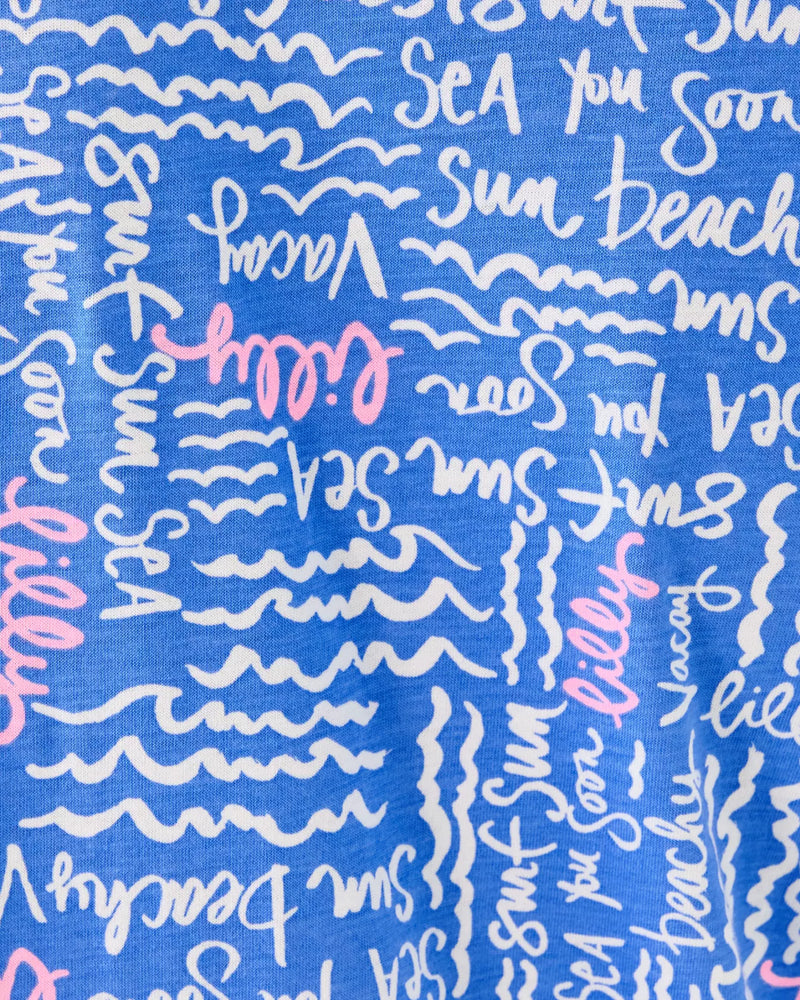 Surf Sun
SEA you Soon
Sun beachy
Vacay
lilly
Surf Sun SEA
SEA you Soon
lilly
Sun
SEA you Soon
SEA Sun Surf
lilly
Vacay
lilly
Surf Sun
SEA you Soon
beachy
Sun beachy V
SEA you Soon
SEA